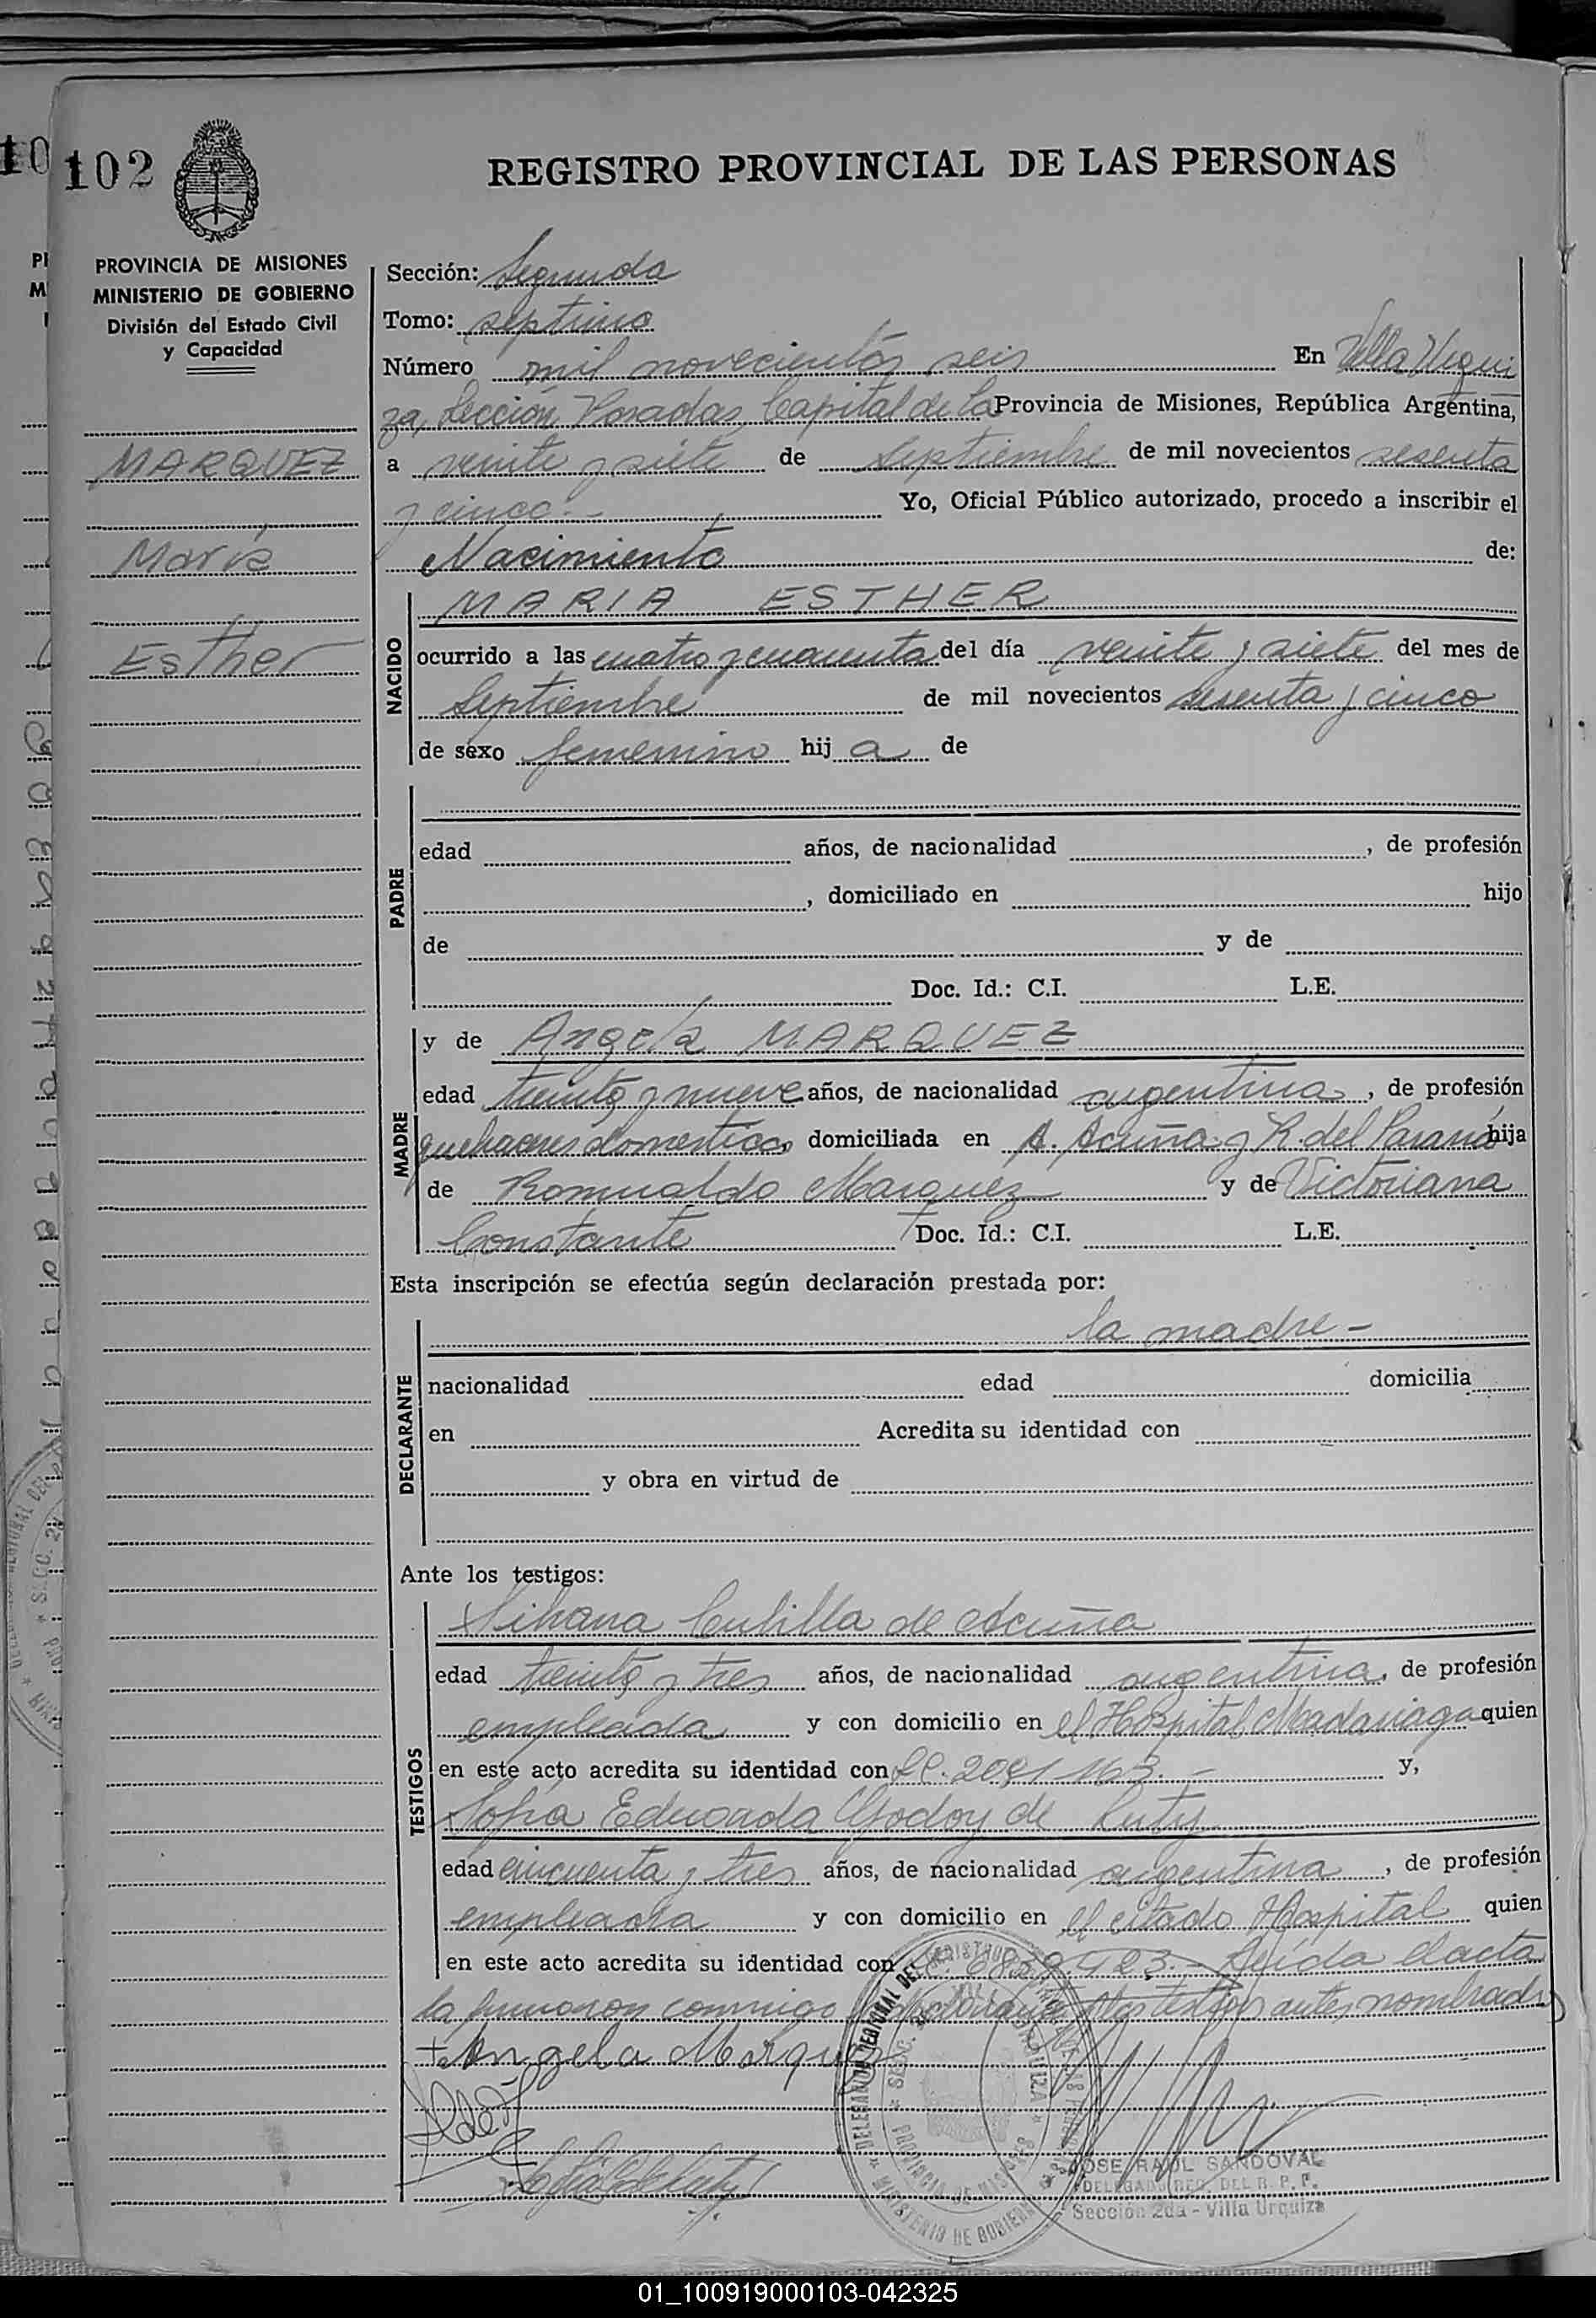 102
REGISTRO PROVINCIAL DE LAS PERSONAS
PROVINCIA DE MISIONES
MINISTERIO DE GOBIERNO
División del Estado Civil
y Capacidad
MARQUEZ
María
Esther
Sección: Segunda
Tomo: septimo
Número mil novecientos seis En Villa Urqui
za, Sección Posadas, Capital de la Provincia de Misiones, República Argentina,
a veinte y siete de Septiembre de mil novecientos sesenta
y cinco.- Yo, Oficial Público autorizado, procedo a inscribir el
Nacimiento de:
NACIDO
MARIA ESTHER
ocurrido a las cuatro y cuarenta del día veinte y siete del mes de
Septiembre de mil novecientos sesenta y cinco
de sexo femenino hij a de
PADRE
edad años, de nacionalidad , de profesión
, domiciliado en hijo
de y de
Doc. Id.: C.I. L.E.
MADRE
y de Angela MARQUEZ
edad treinta y nueve años, de nacionalidad argentina, de profesión
quehaceres domesticos domiciliada en A. Acuña y R. del Paraná hija
de Romualdo Marquez y de Victoriana
Constante Doc. Id.: C.I. L.E.
Esta inscripción se efectúa según declaración prestada por:
DECLARANTE
la madre -
nacionalidad edad domicilia
en Acredita su identidad con
y obra en virtud de
Ante los testigos:
TESTIGOS
de Acuña
edad treinta y tres años, de nacionalidad argentina, de profesión
empleada y con domicilio en el Hospital Madariaga quien
en este acto acredita su identidad con LC. 2091163.- y,
Sofia Eduarda Godoy de
edad cincuenta y tres años, de nacionalidad argentina, de profesión
empleada y con domicilio en el citado Hospital quien
en este acto acredita su identidad con Leída el acta
la firmaron conmigo los testigos antes nombrados
Angela Marquez
JOSE RAUL SANDOVAL
DELEGADO REG. DEL R. P. P.
Sección 2da - Villa Urquiza
01_100919000103-042325